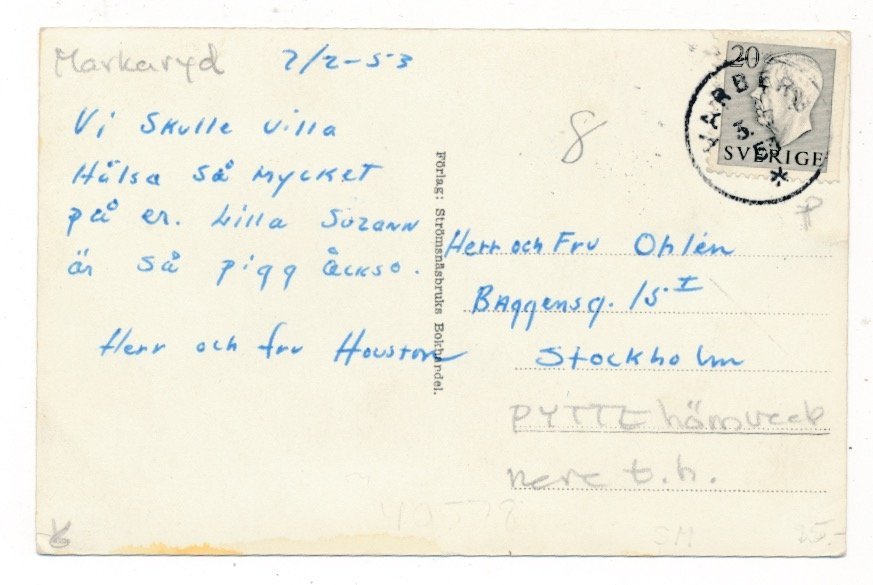 Markaryd 2/2-53
Vi Skulle villa
Hälsa så mycket
på er. Lilla Suzann
är så pigg åckso.
Herr och fru Houston
Förlag: Strömsnäsbruks Bokhandel.
8
20
SVERIGE
VARBERG
Herr och Fru Ohlén
Baggensg. 15 I
Stockholm
PYTTE
nere t.h.
SM
25.-